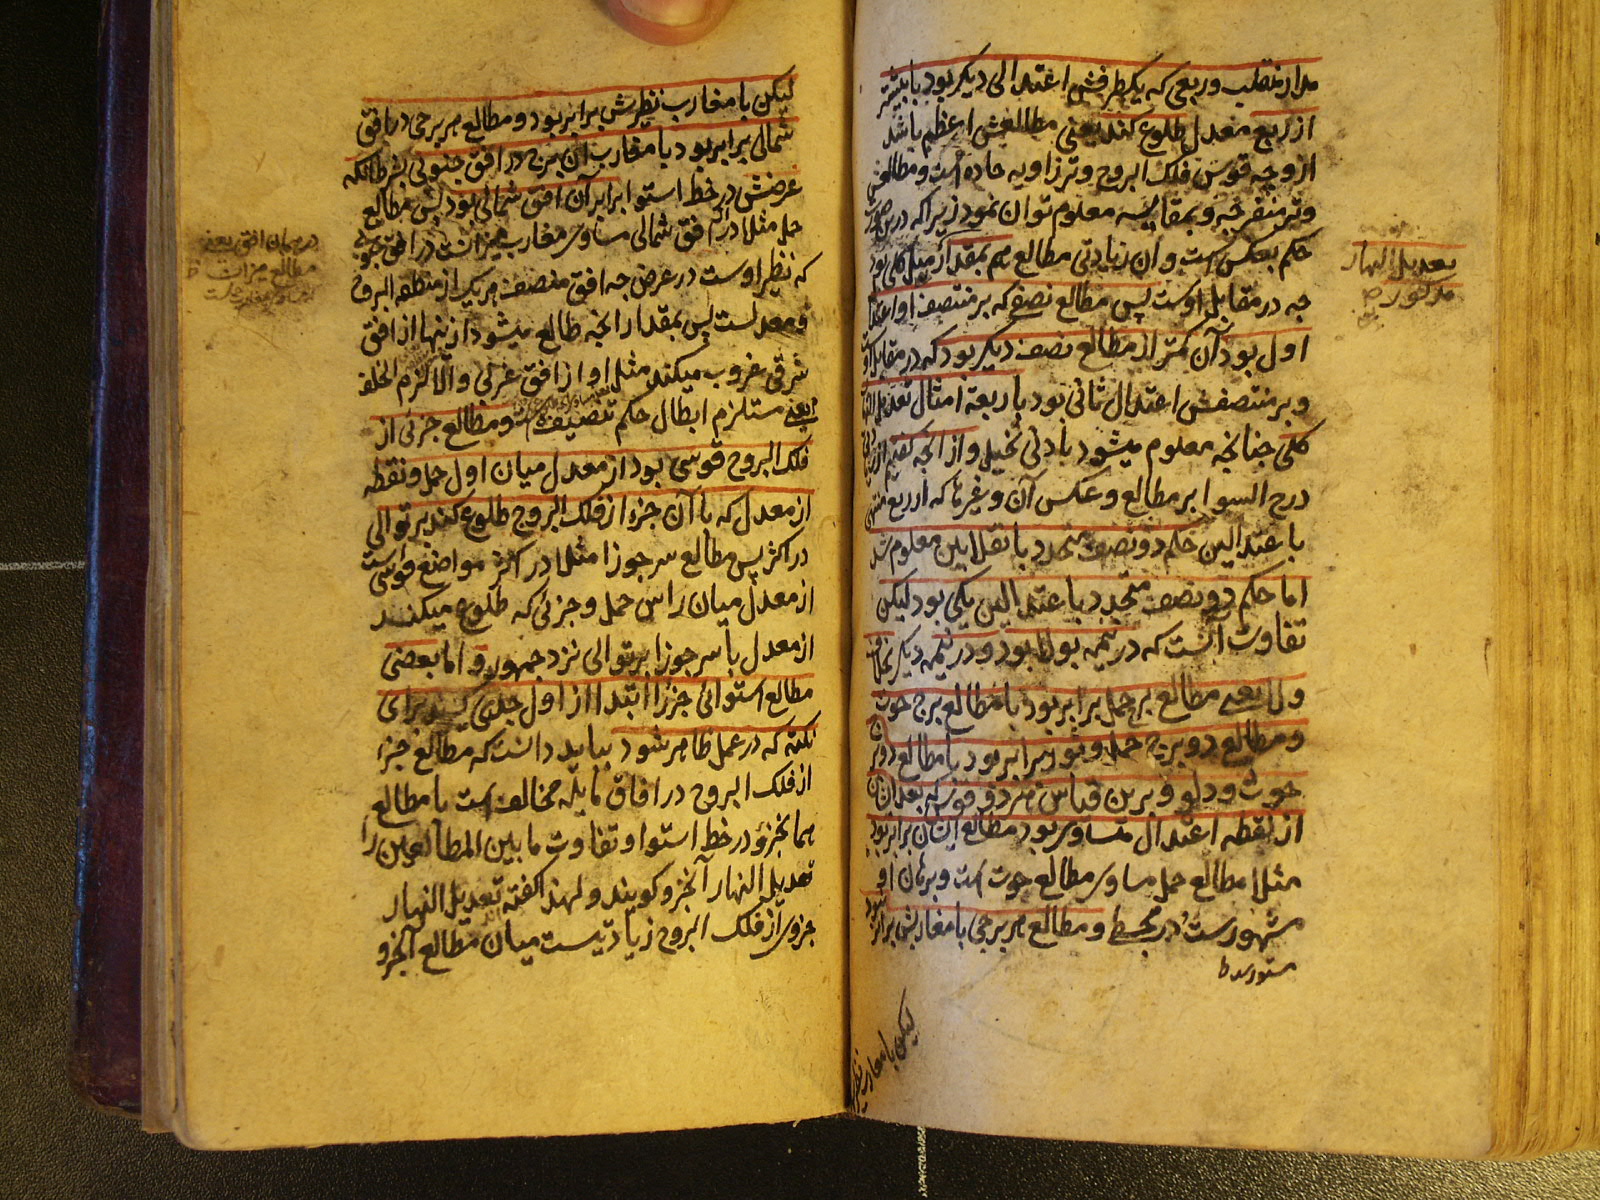 مدار منقلب و ربعی که یکطرفش اعتدالی دیگر بود با بیشتر
از ربع معدل طلوع کند یعنی مطالعش اعظم باشد
از و چه قوس فلک البروج وتر زاویه حاده است و مطالعش
وتر منفرجه و بمقایسه معلوم توان نمود زیرا که درین صورت
حکم بعکس است و آن زیادتی مطالع هم بمقدار میل کلی بود
چه در مقابل اوست پس مطالع نصفی که بر منتصف او اعتدال
اول بود آن کمتر از مطالع نصف دیگر بود که در مقابل او
و بر منتصفش اعتدال ثانی بود باربعة امثال تعدیل النهار
کلی چنانچه معلوم میشود بادنی تخیل و از آنچه گفتیم از
درج السوا بر مطالع و عکس آن و غیرها که از ربع منتهی
با عتدالین حکم دو نصف متحدد بانقلابین معلوم شد
اما حکم دو نصف متحدد باعتدالین یکی بود لیکن
تفاوت آنست که در نیمه بود و در نیمه دیگر
ولا یعنی مطالع برج حمل برابر بود با مطالع برج حوت
و مطالع دو برج حمل و ثور برابر بود با مطالع دو برج
حوت و دلو و برین قیاس هر دو قوس که بعدشان
از نقطه اعتدال متساوی بود مطالع ایشان برابر بود
مثلا مطالع حمل مساوی مطالع حوت است و برهان او
مشهورست در مجسطی و مطالع هر برجی با مغاربش برابر نبود
تعدیل النهار
مذکور
لیکن با مغارب نظیر
لیکن با مغارب نظیرش برابر بود و مطالع هر برجی در افق
شمالی برابر بود با مغارب آن برج در افق جنوبی بشرط آنکه
عرضش در خط استوا برابر آن افق شمالی بود پس مطالع
حمل مثلا در افق شمالی مساوی مغارب میزانست در افق جنوبی
که نظیر اوست در عرض چه افق منصف هر یک از منطقه البروج
و معدلست پس بمقدار آنچه طالع میشود از نها از افق
شرقی غروب میکند مثل او از افق غربی و الا لزم الخلف
یعنی مستلزم ابطال حکم تنصیف و مطالع جزئی از
فلک البروج قوسی بود از معدل میان اول حمل و نقطه
از معدل که با آن جزء از فلک البروج طلوع کند بر توالی
در اکثر پس مطالع سر جوزا مثلا در اکثر مواضع قوسیست
از معدل میان راس حمل و جزئی که طلوع میکند
از معدل با سر جوزا بر توالی نزد جمهور و اما بعضی
مطالع استوائی جزء را ابتدا از اول جدی گیرند برای
نکته که در عمل ظاهر شود بباید دانست که مطالع جزء
از فلک البروج در افاق مایله مخالف است با مطالع
همانجزو در خط استوا و تفاوت ما بین المطالعین را
تعدیل النهار آنجزو کویند و لهذا گفته تعدیل النهار
جزوی از فلک البروج زیادتیست میان مطالع آنجزو
در همان افق یعنی
مطالع میزان